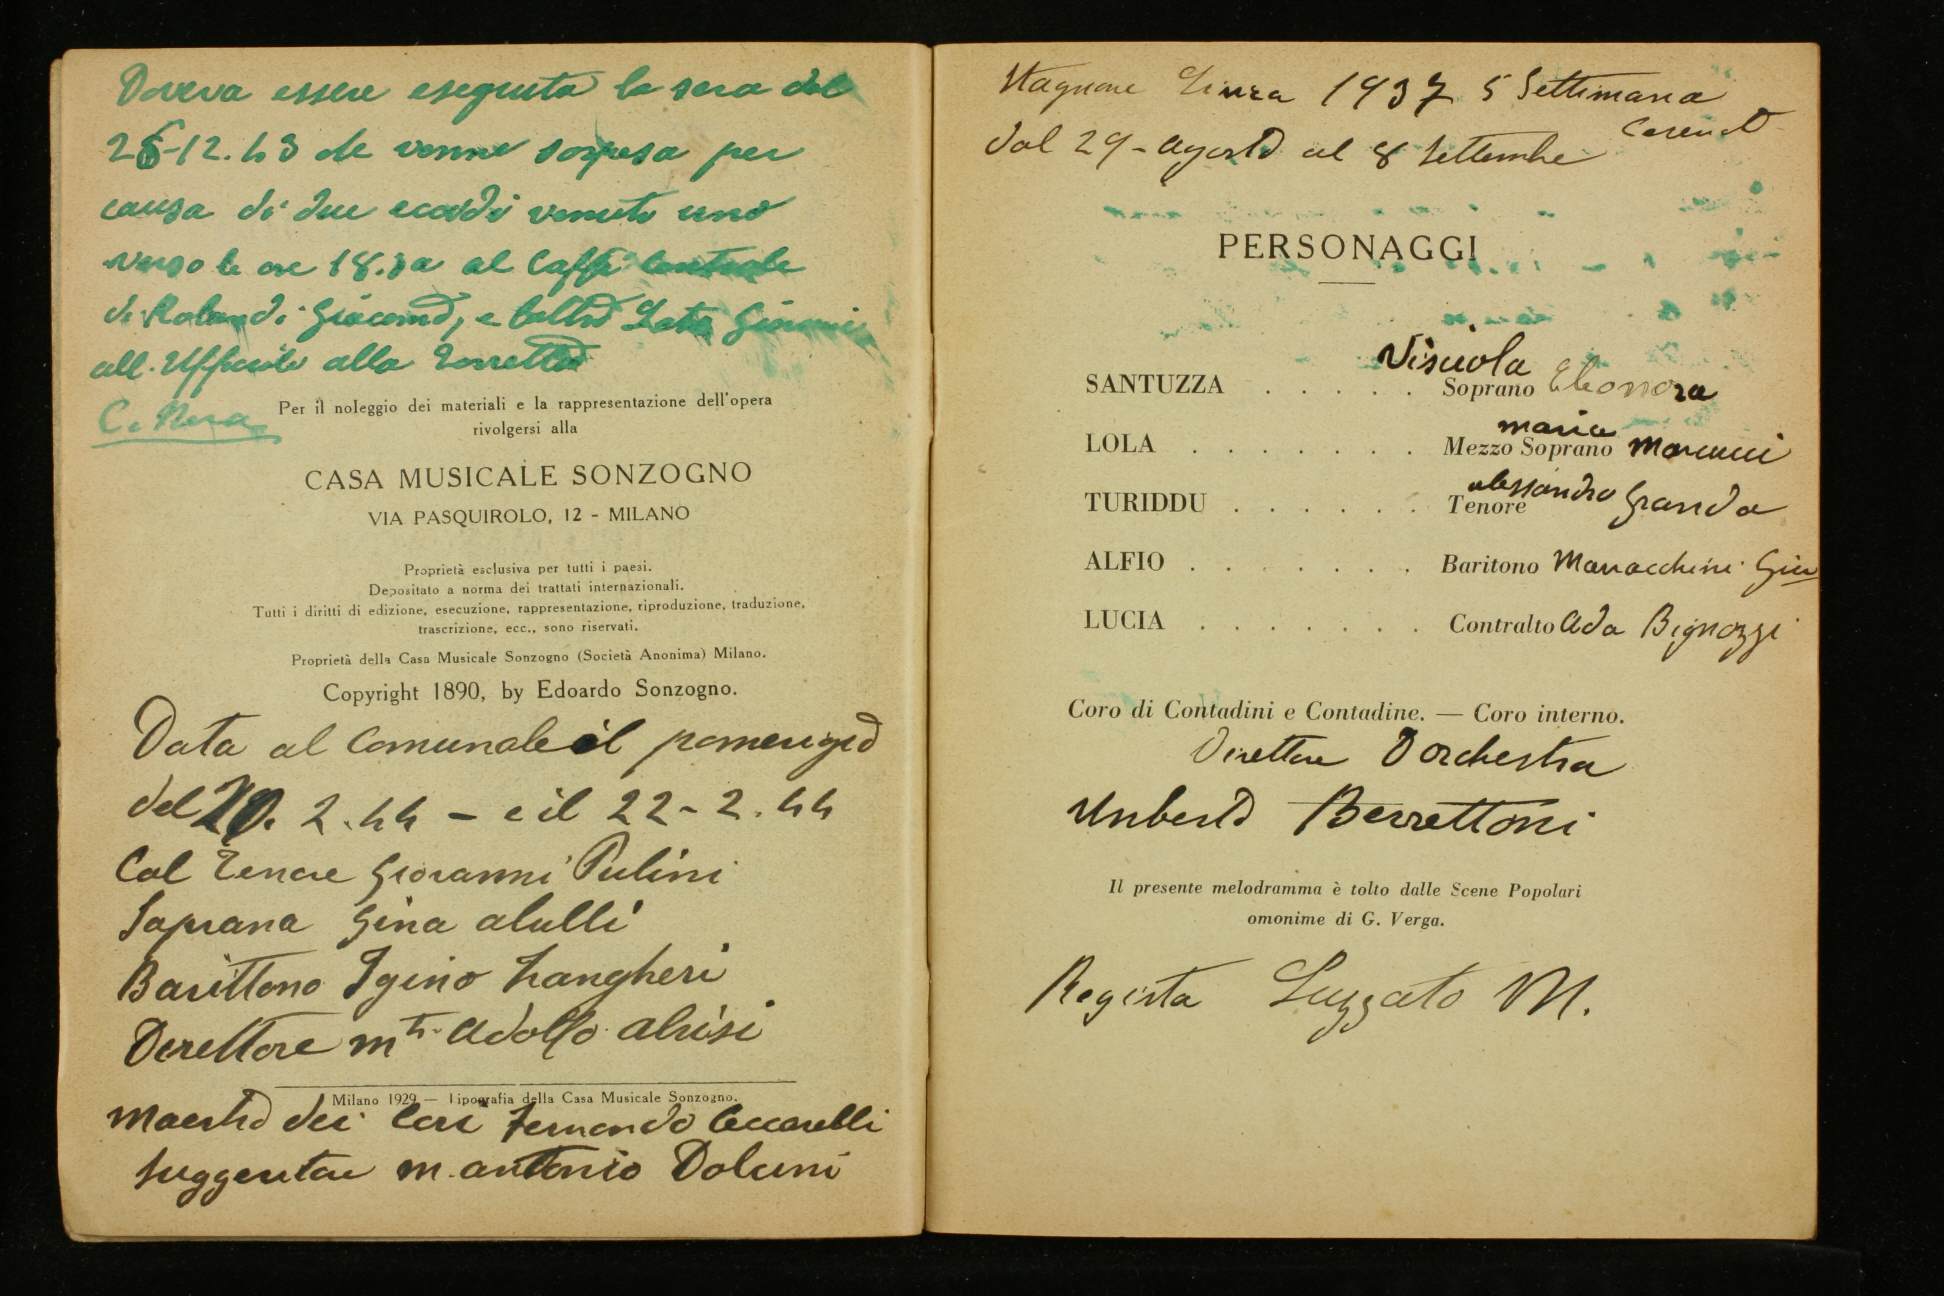 Doveva essere eseguita la sera del
26-12.43 che venne sospesa per
causa di due eccidi venuti uno
verso le ore 18.30 al Caffè Centrale
di Rolandi Giacomo, e l'altro Zata Giovanni
all. Ufficiale alla Torretta
C. Nera
Per il noleggio dei materiali e la rappresentazione dell'opera
rivolgersi alla
CASA MUSICALE SONZOGNO
VIA PASQUIROLO, 12 - MILANO
Proprietà esclusiva per tutti i paesi.
Depositato a norma dei trattati internazionali.
Tutti i diritti di edizione, esecuzione, rappresentazione, riproduzione, traduzione,
trascrizione, ecc., sono riservati.
Proprietà della Casa Musicale Sonzogno (Società Anonima) Milano.
Copyright 1890, by Edoardo Sonzogno.
Data al Comunale il pomerigio
del 20. 2.44 - e il 22-2.44
Col Tenore Giovanni Pulini
Soprana Gina alulli
Barittono Igino Zangheri
Direttore m. adolfo alvisi
Milano 1929 — Tipografia della Casa Musicale Sonzogno.
Maestro dei Cori Fernando Ceccarelli
Suggeritore m. antonio Dolcini
Stagione Lirica 1937 5 Settimana
Dal 29-agosto al 8 Settembre
PERSONAGGI
Viscuola
SANTUZZA . . . . . Soprano Eleonora
maria
LOLA . . . . . . . Mezzo Soprano Marcucci
alessandro
TURIDDU . . . . . . Tenore Granda
ALFIO . . . . . . . Baritono Manacchini Giu
LUCIA . . . . . . . Contralto Ada Bignozzi
Coro di Contadini e Contadine. — Coro interno.
Direttore D'orchestra
Unberto Berrettoni
Il presente melodramma è tolto dalle Scene Popolari
omonime di G. Verga.
Regista Luzzato M.